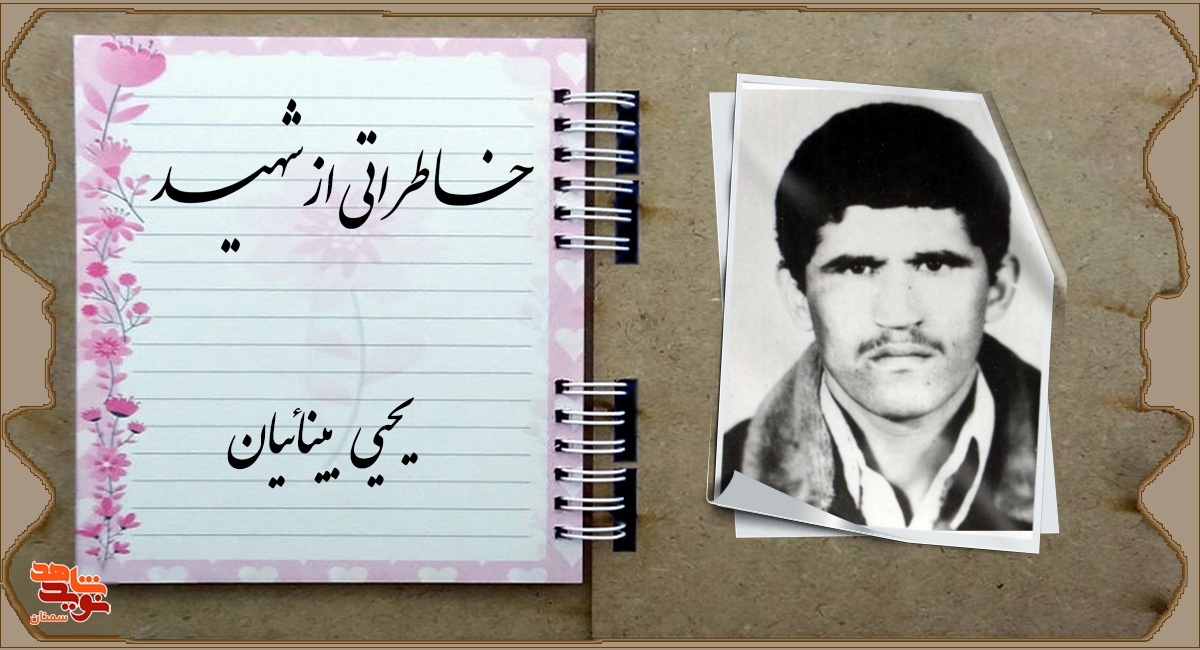 خاطراتی از شهید
یحیی بینائیان
نوید شاهد
سمنان